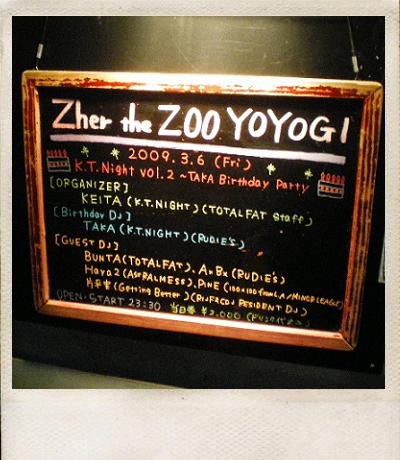 Zher the ZOO YOYOGI
2009.3.6 (Fri)
K.T.Night vol.2 ~TAKA Birthday Party
[ORGANIZER]
KEITA (K.T.NIGHT) (TOTALFAT Staff)
[Birthday DJ]
TAKA (K.T.NIGHT) (RUDIE'S)
[GUEST DJ]
BUNTA (TOTALFAT). AxBx (RUDIE'S).
Haya2 (ASTRALMESS). PINE (100x100 from L.A/MINOR LEAGUE)
片平実 (Getting Better) (RESIDENT DJ)
OPEN・START 23:30 当日券 ¥2.000 (ドリンク代